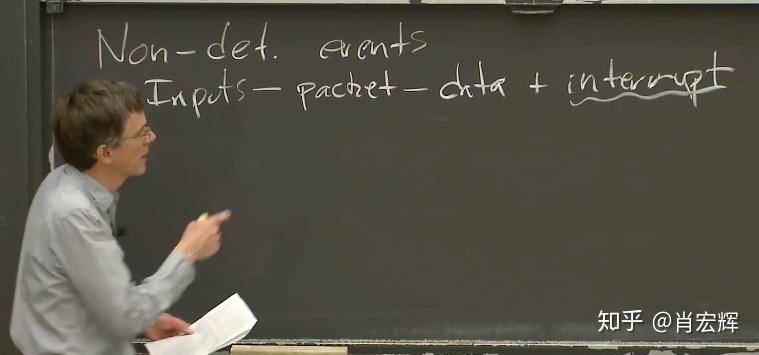 Non-det. events
Inputs - packet - data + interrupt
知乎 @肖宏辉